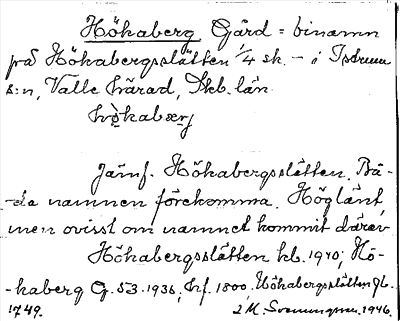 Höhaberg Gård = binamn
på Höhabergsslätten 1/4 sk. - i Istrum
s:n, Valle härad, Skb. län
Jämf. Höhabergsslätten. Bå-
-da namnen förekomma. Höglänt,
men ovisst om namnet kommit därav
Höhabergsslätten hl. 1940; Hö-
-haberg G. 53. 1936, hf. 1800. Höhabergsslätten Jb.
1749. 1946.